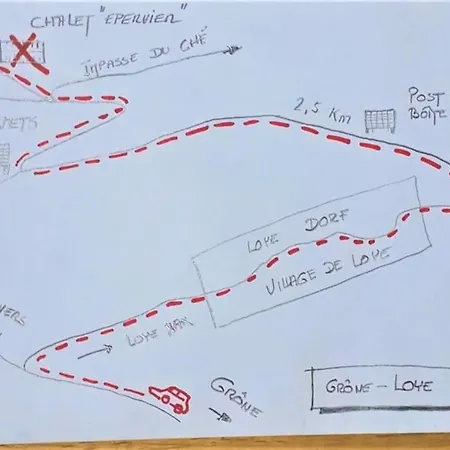 CHALET "EPERVIER"
IMPASSE DU CHÉ
2,5 Km
POST
BOÎTE
LOYE DORF
VILLAGE DE LOYE
GRÔNE
GRÔNE - LOYE